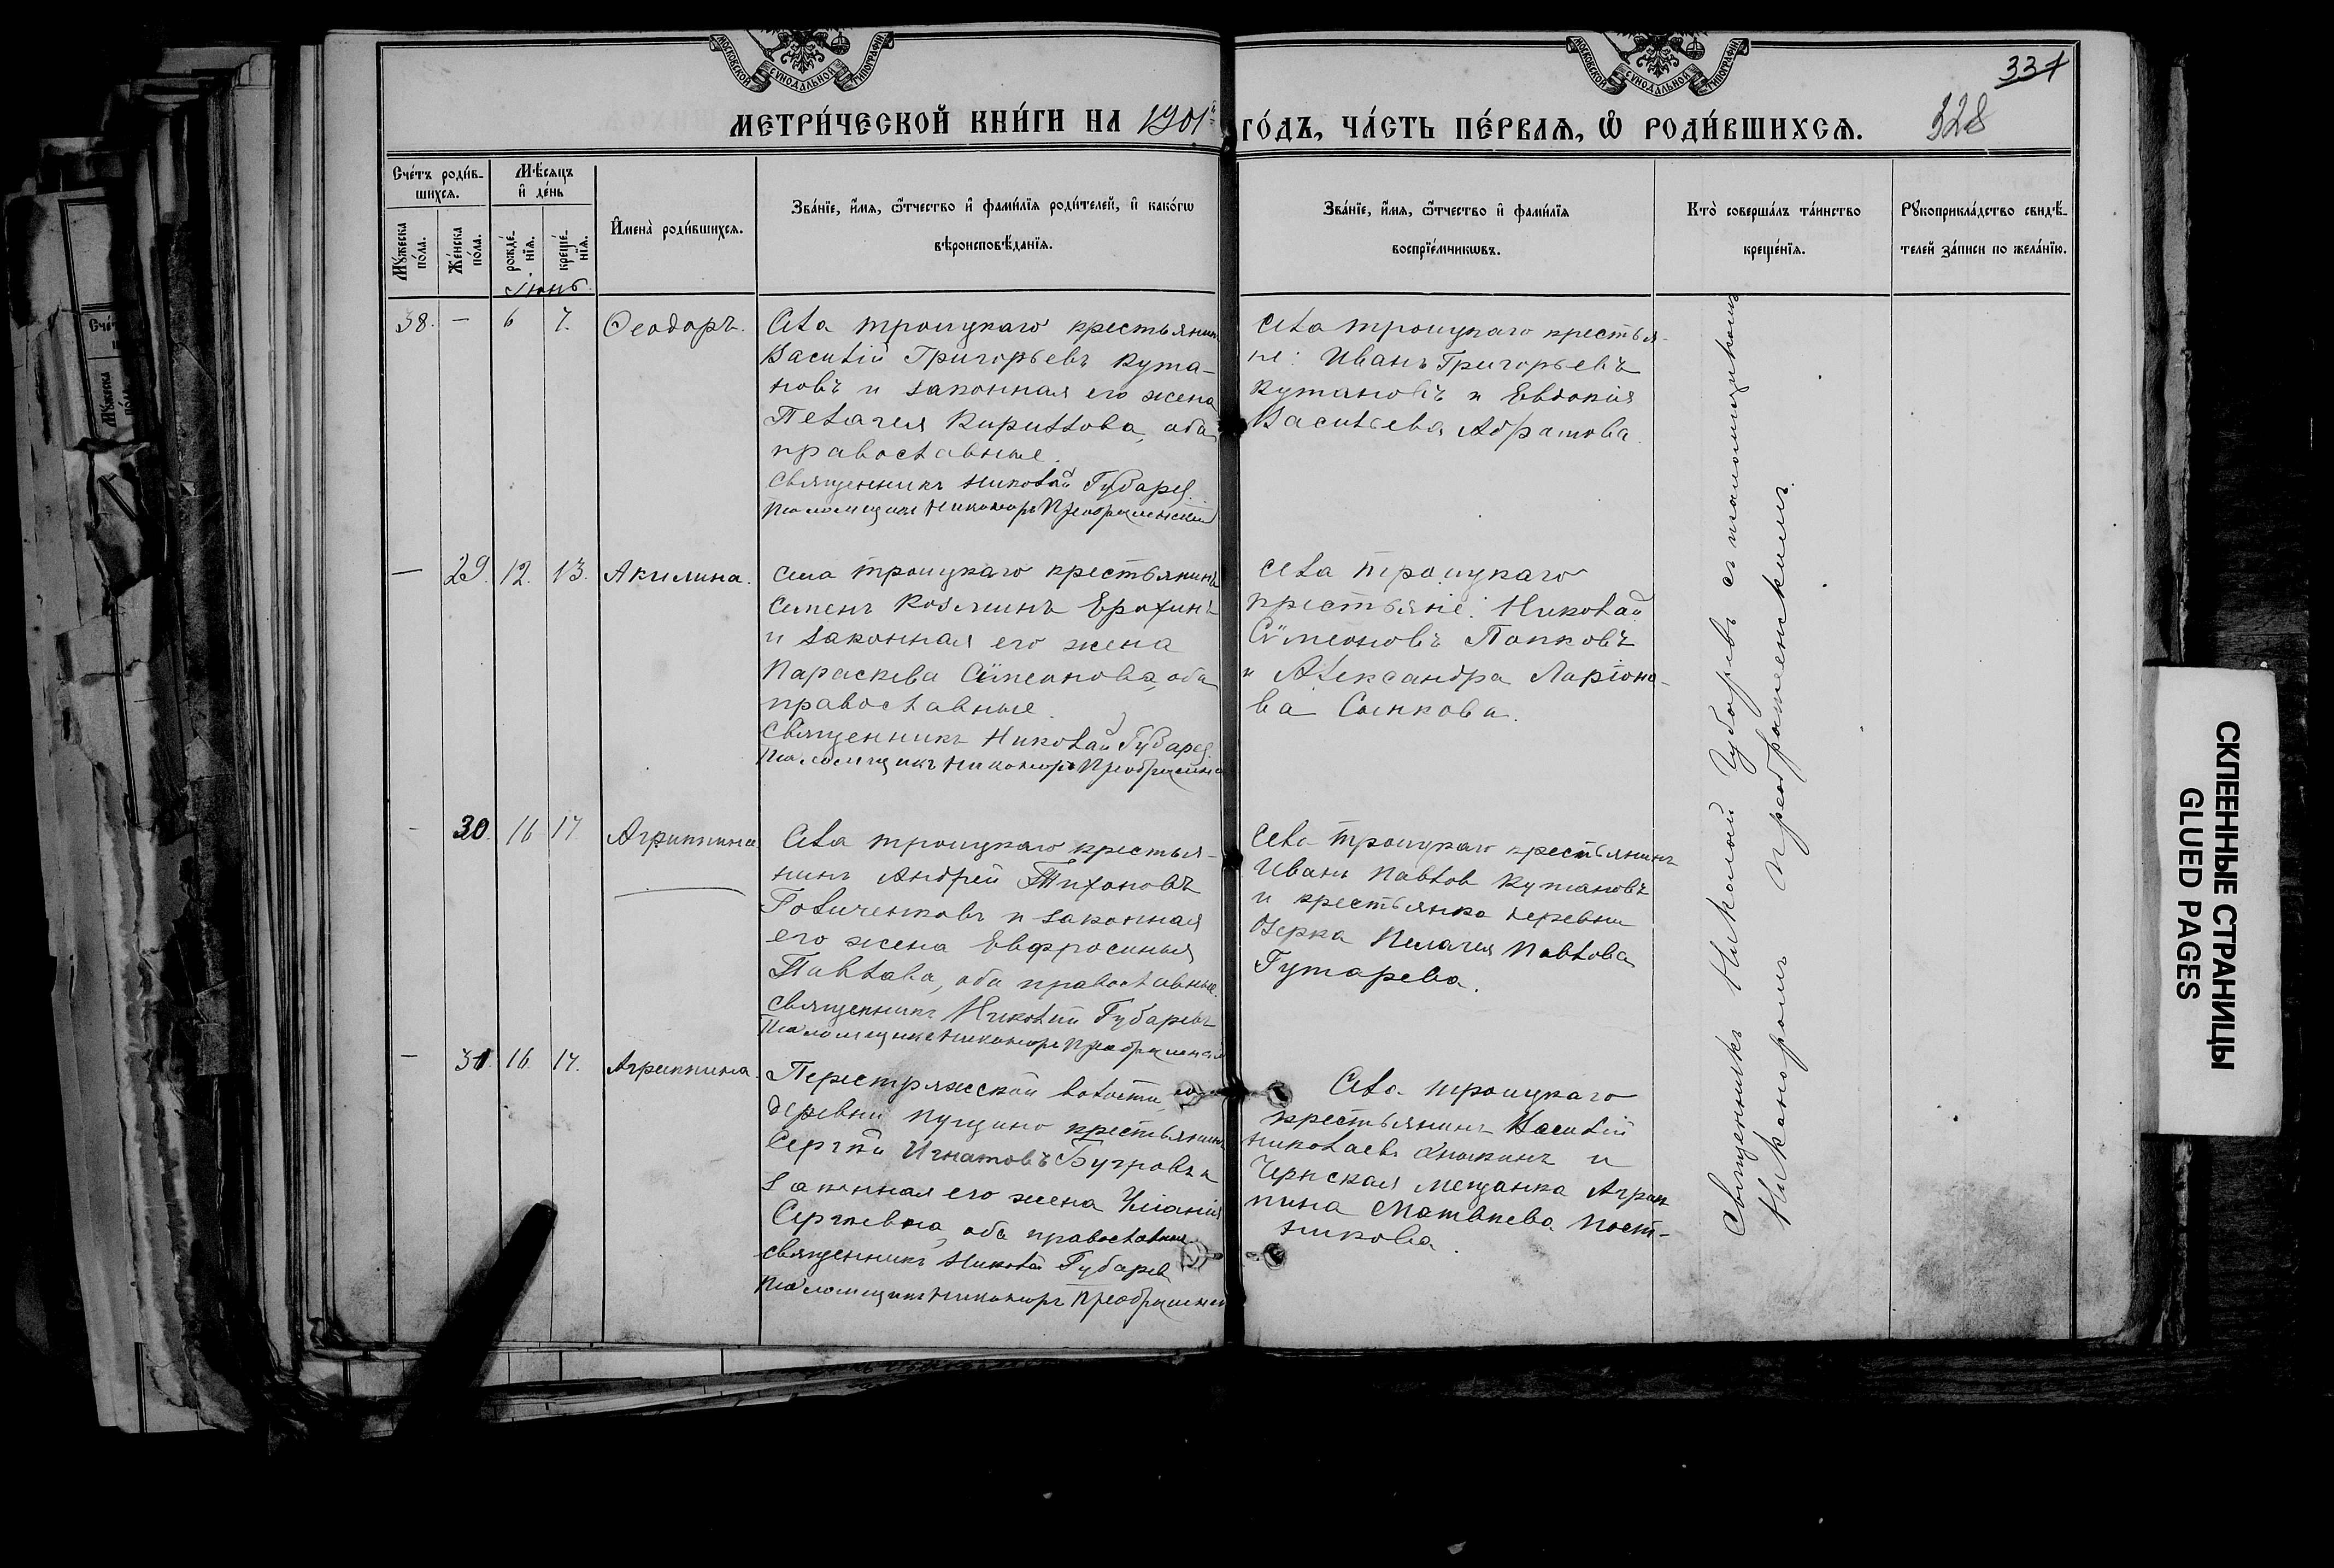 МОСКОВСКОЙ СѴНОДАЛЬНОЙ ТИПОГРАФІИ
МОСКОВСКОЙ СѴНОДАЛЬНОЙ ТИПОГРАФІИ
331
328
МЕТРИ́ЧЕСКОЙ КНИ́ГИ НА 1901й ГО́ДЪ, ЧА́СТЬ ПЕ́РВАѦ, Ѡ РОДИ́ВШИХСѦ.
Сче́тъ роди́в-
шихсѧ.
Мѣ́сѧцъ
и҆ де́нь
Му́жеска
по́ла.
Же́нска
по́ла.
рожде́-
нїѧ.
креще́-
нїѧ.
И҆мена̀ роди́вшихсѧ.
Зва́нїе, и҆́мѧ, ѻ҆́тчество и҆ фами́лїѧ роди́телей, и҆ како́гѡ
вѣроисповѣ́данїѧ.
Зва́нїе, и҆́мѧ, ѻ҆́тчество и҆ фами́лїѧ
воспрїе́мникѡвъ.
Кто̀ соверша́лъ та́инство
креще́нїѧ.
Рꙋкоприкла́дство свидѣ́-
телей за́писи по жела́нїю.
Іюнь
38. — 6 7. Ѳеодоръ.
Села троицкаго крестьянинъ
Василій Григорьевъ Кута-
новъ и законная его жена
Пелагея Кириллова, оба
православные.
Священникъ Николай Губарев
Псаломщикъ Никаноръ Преображенскій
Села троицкаго крестья-
не: Иванъ Григорьевъ
Кутановъ и Евдокія
Васильева Абрамова.
— 29. 12. 13. Акилина.
Села троицкаго крестьянинъ
Семенъ Козминъ Ерохинъ
и законная его жена
Параскева Сѵмеонова, оба
православные
Священникъ Николай Губарев
Псаломщикъ Никаноръ Преображенс
Села троицкаго
крестьяне: Николай
Сѵмеоновъ Папковъ
и Александра Ларіоно-
ва Сынкова.
- 30. 16 17. Агриппина
Села троицкаго крестья-
нинъ Андрей Тихоновъ
Голиченковъ и законная
его жена Евфросинья
Павлова, оба православные.
Священникъ Николай Губаревъ
Псаломщикъ Никаноръ Преображенскій
Села троицкаго крестьянинъ
Иванъ Павлов Кутановъ
и крестьянка деревни
Озерка Пелагея Павлова
Гутарева.
— 31. 16. 17. Агриппина.
Перестряжской волости,
деревни Пущино крестьянинъ
Сергѣй Игнатовъ Бугровъ и
законная его жена
Сергѣевна, оба православные.
Священникъ Николай Губарев
Псаломщикъ Никаноръ Преображенск
Села троицкаго
крестьянинъ Василій
Николаевъ и
Чернская мещанка Агрип
пина Матвѣева Пост-
никова.
Священникъ Николай Губаревъ съ псаломщикомъ
Никаноромъ Преображенскимъ.
СКЛЕЕННЫЕ СТРАНИЦЫ
GLUED PAGES